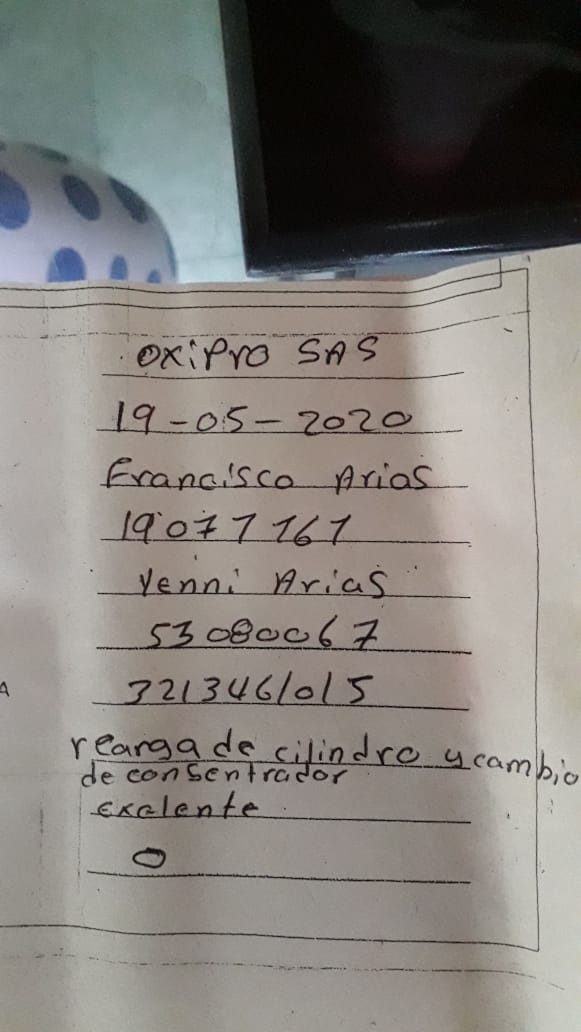 OXiPro SAS
19-05-2020
Francisco Arias
19077167
Yenni Arias
53080067
3213461015
A
rearga de cilindro y cambio
de consentrador
exalente
0